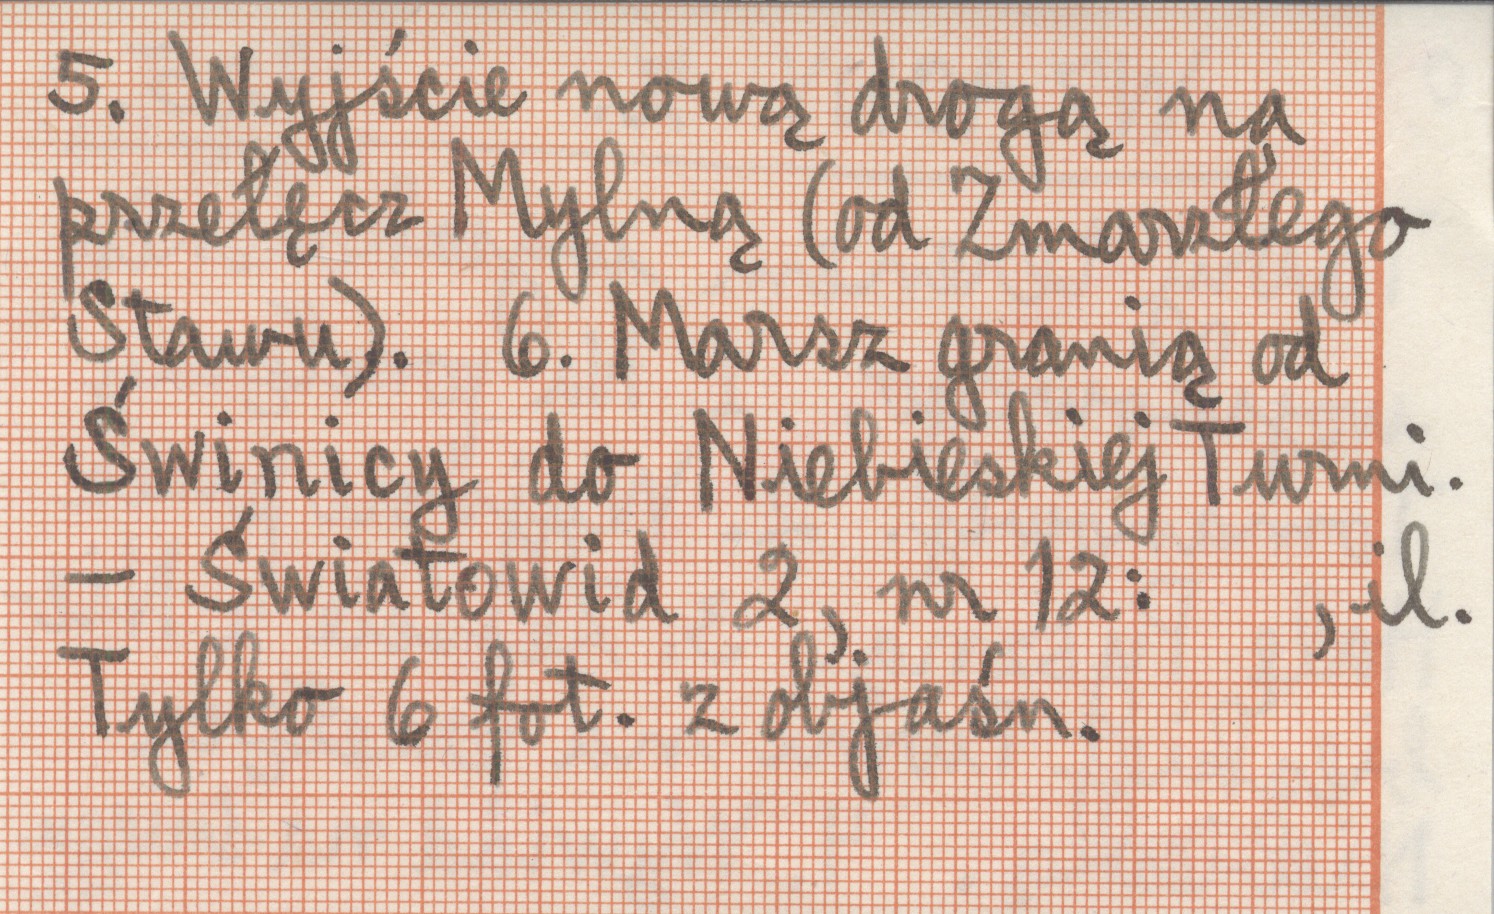 5. Wyjście nową drogą na
przełęcz Mylną (od Zmarzłego
Stawu). 6. Marsz granią od
Świnicy do Niebieskiej Turni.
– Światowid 2, nr 12: , il.
Tylko 6 fot. z objaśn.